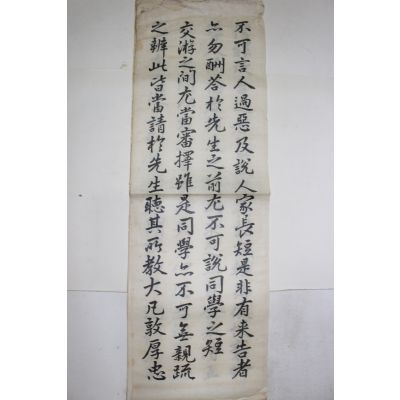 不可言人過惡及說人家長短是非有来告者
亦勿酬答於先生之前尤不可說同學之短
交游之间尤當審擇雖是同學亦不可無親疏
之辨此皆當請於先生聽其所教大凡敦厚忠